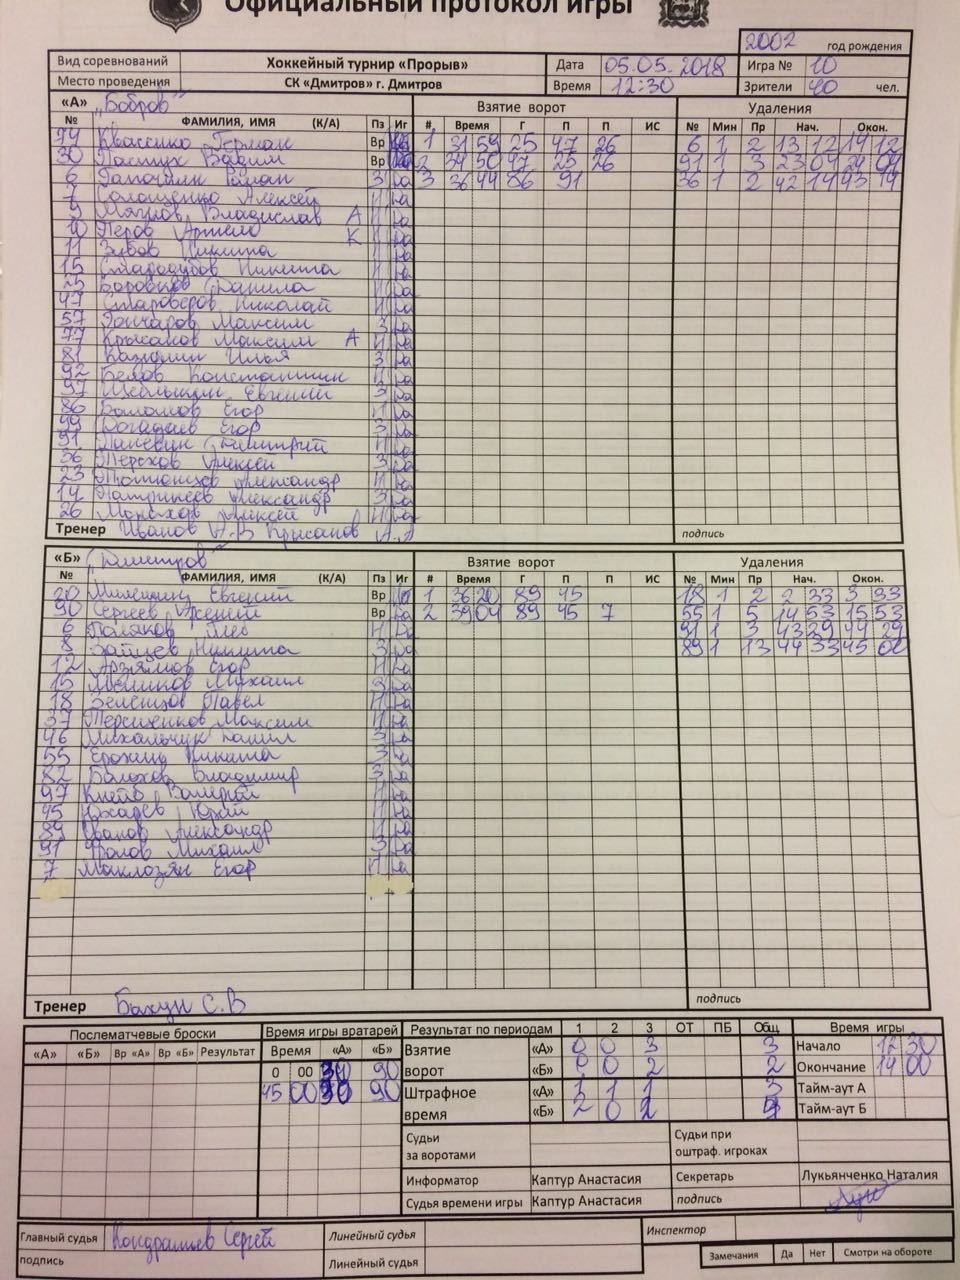 Официальный протокол игры
2002 год рождения
Вид соревнований Хоккейный турнир «Прорыв» Дата 05.05.2018 Игра № 10
Место проведения СК «Дмитров» г. Дмитров Время 12:30 Зрители 40 чел.
«А» "Бобров" Взятие ворот Удаления
№ ФАМИЛИЯ, ИМЯ (К/А) Пз Иг # Время Г П П ИС № Мин Пр Нач. Окон.
79 Квассинко Герман Вр 1 31 59 25 47 26 6 1 2 13 12 14 12
30 Пастух Вадим Вр 2 34 50 97 25 26 91 1 3 23 04 24 04
6 Роман З да 3 36 44 86 91 36 1 2 42 14 43 14
7 Алексей Н да
9 Владислав А Н да
10 Перов К Н да
11 Зубов Никита Н да
15 Стародубов Никита Н да
25 Боровков Данила Н да
47 Староверов Николай Н да
57 Гончаров Максим З да
77 Крысанов Максим А Н да
81 Илья З да
92 Белов Константин Н да
97 Евгений З да
86 Егор Н да
99 Егор З да
91 Дмитрий Н да
36 Терехов Алексей З да
23 Александр Н да
14 Александр З да
26 Алексей Н да
Тренер Иванов А.В Крысанов А.А подпись
«Б» "Дмитров" Взятие ворот Удаления
№ ФАМИЛИЯ, ИМЯ (К/А) Пз Иг # Время Г П П ИС № Мин Пр Нач. Окон.
20 Евгений Вр 1 36 20 89 45 18 1 2 2 33 3 33
90 Сергеев Арсений Вр да 2 39 04 89 45 7 55 1 5 14 53 15 53
6 Поляков Глеб Н да 91 1 3 43 29 44 29
8 Зайцев Никита З да 89 1 13 44 33 45 00
12 Арзямов Егор Н да
15 Михаил З да
18 Зеленцов Павел Н да
37 Терещенков Максим Н да
46 Михальчук Данил З да
55 Ерохин Никита З да
82 Балахов Владимир З да
97 Валерий Н да
45 Юхарев Юрий Н да
89 Иванов Александр Н да
91 Фролов Михаил З да
7 Маклозян Егор Н да
Тренер Бахун С.В подпись
Послематчевые броски Время игры вратарей Результат по периодам 1 2 3 ОТ ПБ Общ. Время игры
«А» «Б» Вр «А» Вр «Б» Результат Время «А» «Б» Взятие ворот «А» 0 0 3 3 Начало 12 30
0 00 30 90 «Б» 0 0 2 2 Окончание 14 00
45 00 30 90 Штрафное время «А» 1 1 1 3 Тайм-аут А
«Б» 2 0 2 4 Тайм-аут Б
Судьи за воротами Судьи при оштраф. игроках
Информатор Каптур Анастасия Секретарь Лукьянченко Наталия
Судья времени игры Каптур Анастасия подпись
Главный судья Кондрашев Сергей Линейный судья Инспектор
подпись Линейный судья Замечания Да Нет Смотри на обороте